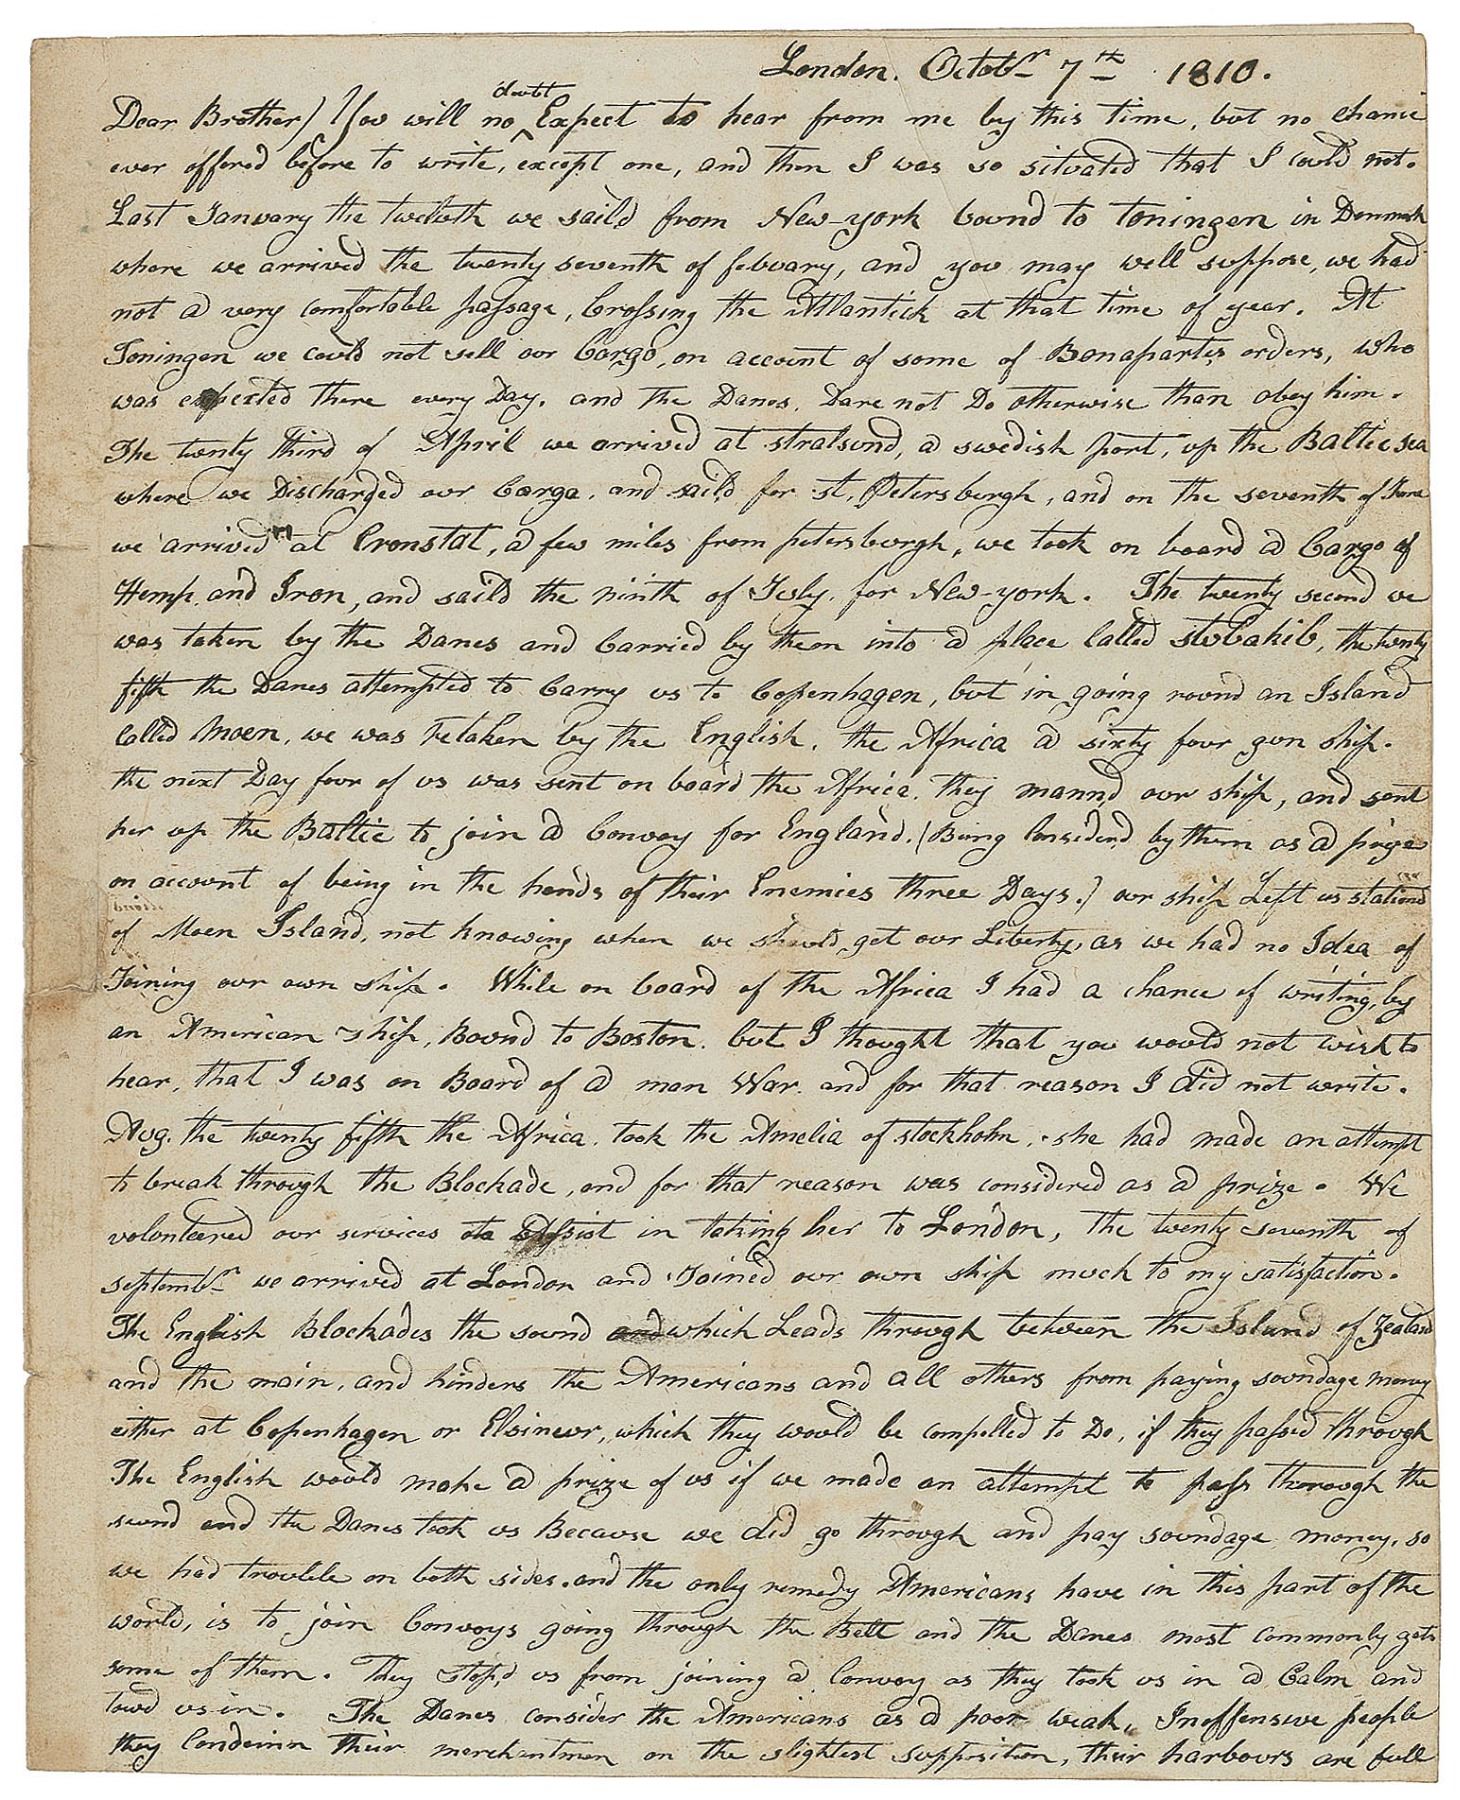 London. Octobr 7th 1810.
Dear Brother) You will no doubt Expect to hear from me by this time, but no chance
ever offered before to write, except one, and then I was so situated that I could not.
Last January the twelvth we saild from New-york bound to Toningen in Denmark
where we arrived the twenty seventh of febuary, and you may well suppose, we had
not a very comfortable passage, Crossing the Atlantick at that time of year. At
Toningen we could not sell our Cargo, on account of some of Bonapartes orders, who
was expected there every Day. and the Danes. Dare not Do otherwise than obey him.
The twenty third of April we arrived at stralsund, a swedish port, up the Baltic sea
where we Discharged our Cargo. and saild for st. Petersburgh, and on the seventh of June
we arrived at Cronstat, a few miles from petersburgh, we took on board a Cargo of
Hemp. and Iron, and saild the ninth of July. for New-york. The twenty second we
was taken by the Danes and Carried by them into a place Called stubakib, the twenty
fifth the Danes attempted to Carry us to Copenhagen, but in going round an Island
Called Moen, we was retaken by the English. the Africa a sixty four gun ship.
the next Day four of us was sent on board the Africa. they mannd our ship, and sent
her up the Baltic to join a Convoy for England. (Being Considerd by them as a prize
on account of being in the hands of their Enemies three Days.) our ship Left us stationd
of Moen Island, not knowing when we should get our Liberty, as we had no Idea of
Joining our own ship. While on board of the Africa I had a chance of writing, by
an American ship, Bound to Boston. but I thought that you would not wish to
hear, that I was on Board of a man War. and for that reason I did not write.
Aug. the twenty fifth the Africa. took the Amelia of stockholm. she had made an attempt
to break through the Blockade, and for that reason was considered as a prize. We
volonteered our services to assist in taking her to London, the twenty seventh of
septembr we arrived at London and Joined our own ship much to my satisfaction.
The English Blockades the sound and which Leads through between the Island of Zealand
and the main. and hinders the Americans and all others from paying soundage money
either at Copenhagen or Elsineur, which they would be compelled to Do, if they passed through
The English would make a prize of us if we made an attempt to pass thorough the
sound and the Danes took us Because we did go through and pay soundage money, so
we had trouble on both sides. and the only remedy Americans have in this part of the
world, is to join Convoys going through the Belt and the Danes most commonly gets
some of them. They stop,d us from joining a Convoy as they took us in a Calm and
towd us in. The Danes consider the Americans as a poor weak, Inoffensive people
they Condemn their merchantmen on the slightest supposition, their harbours are full